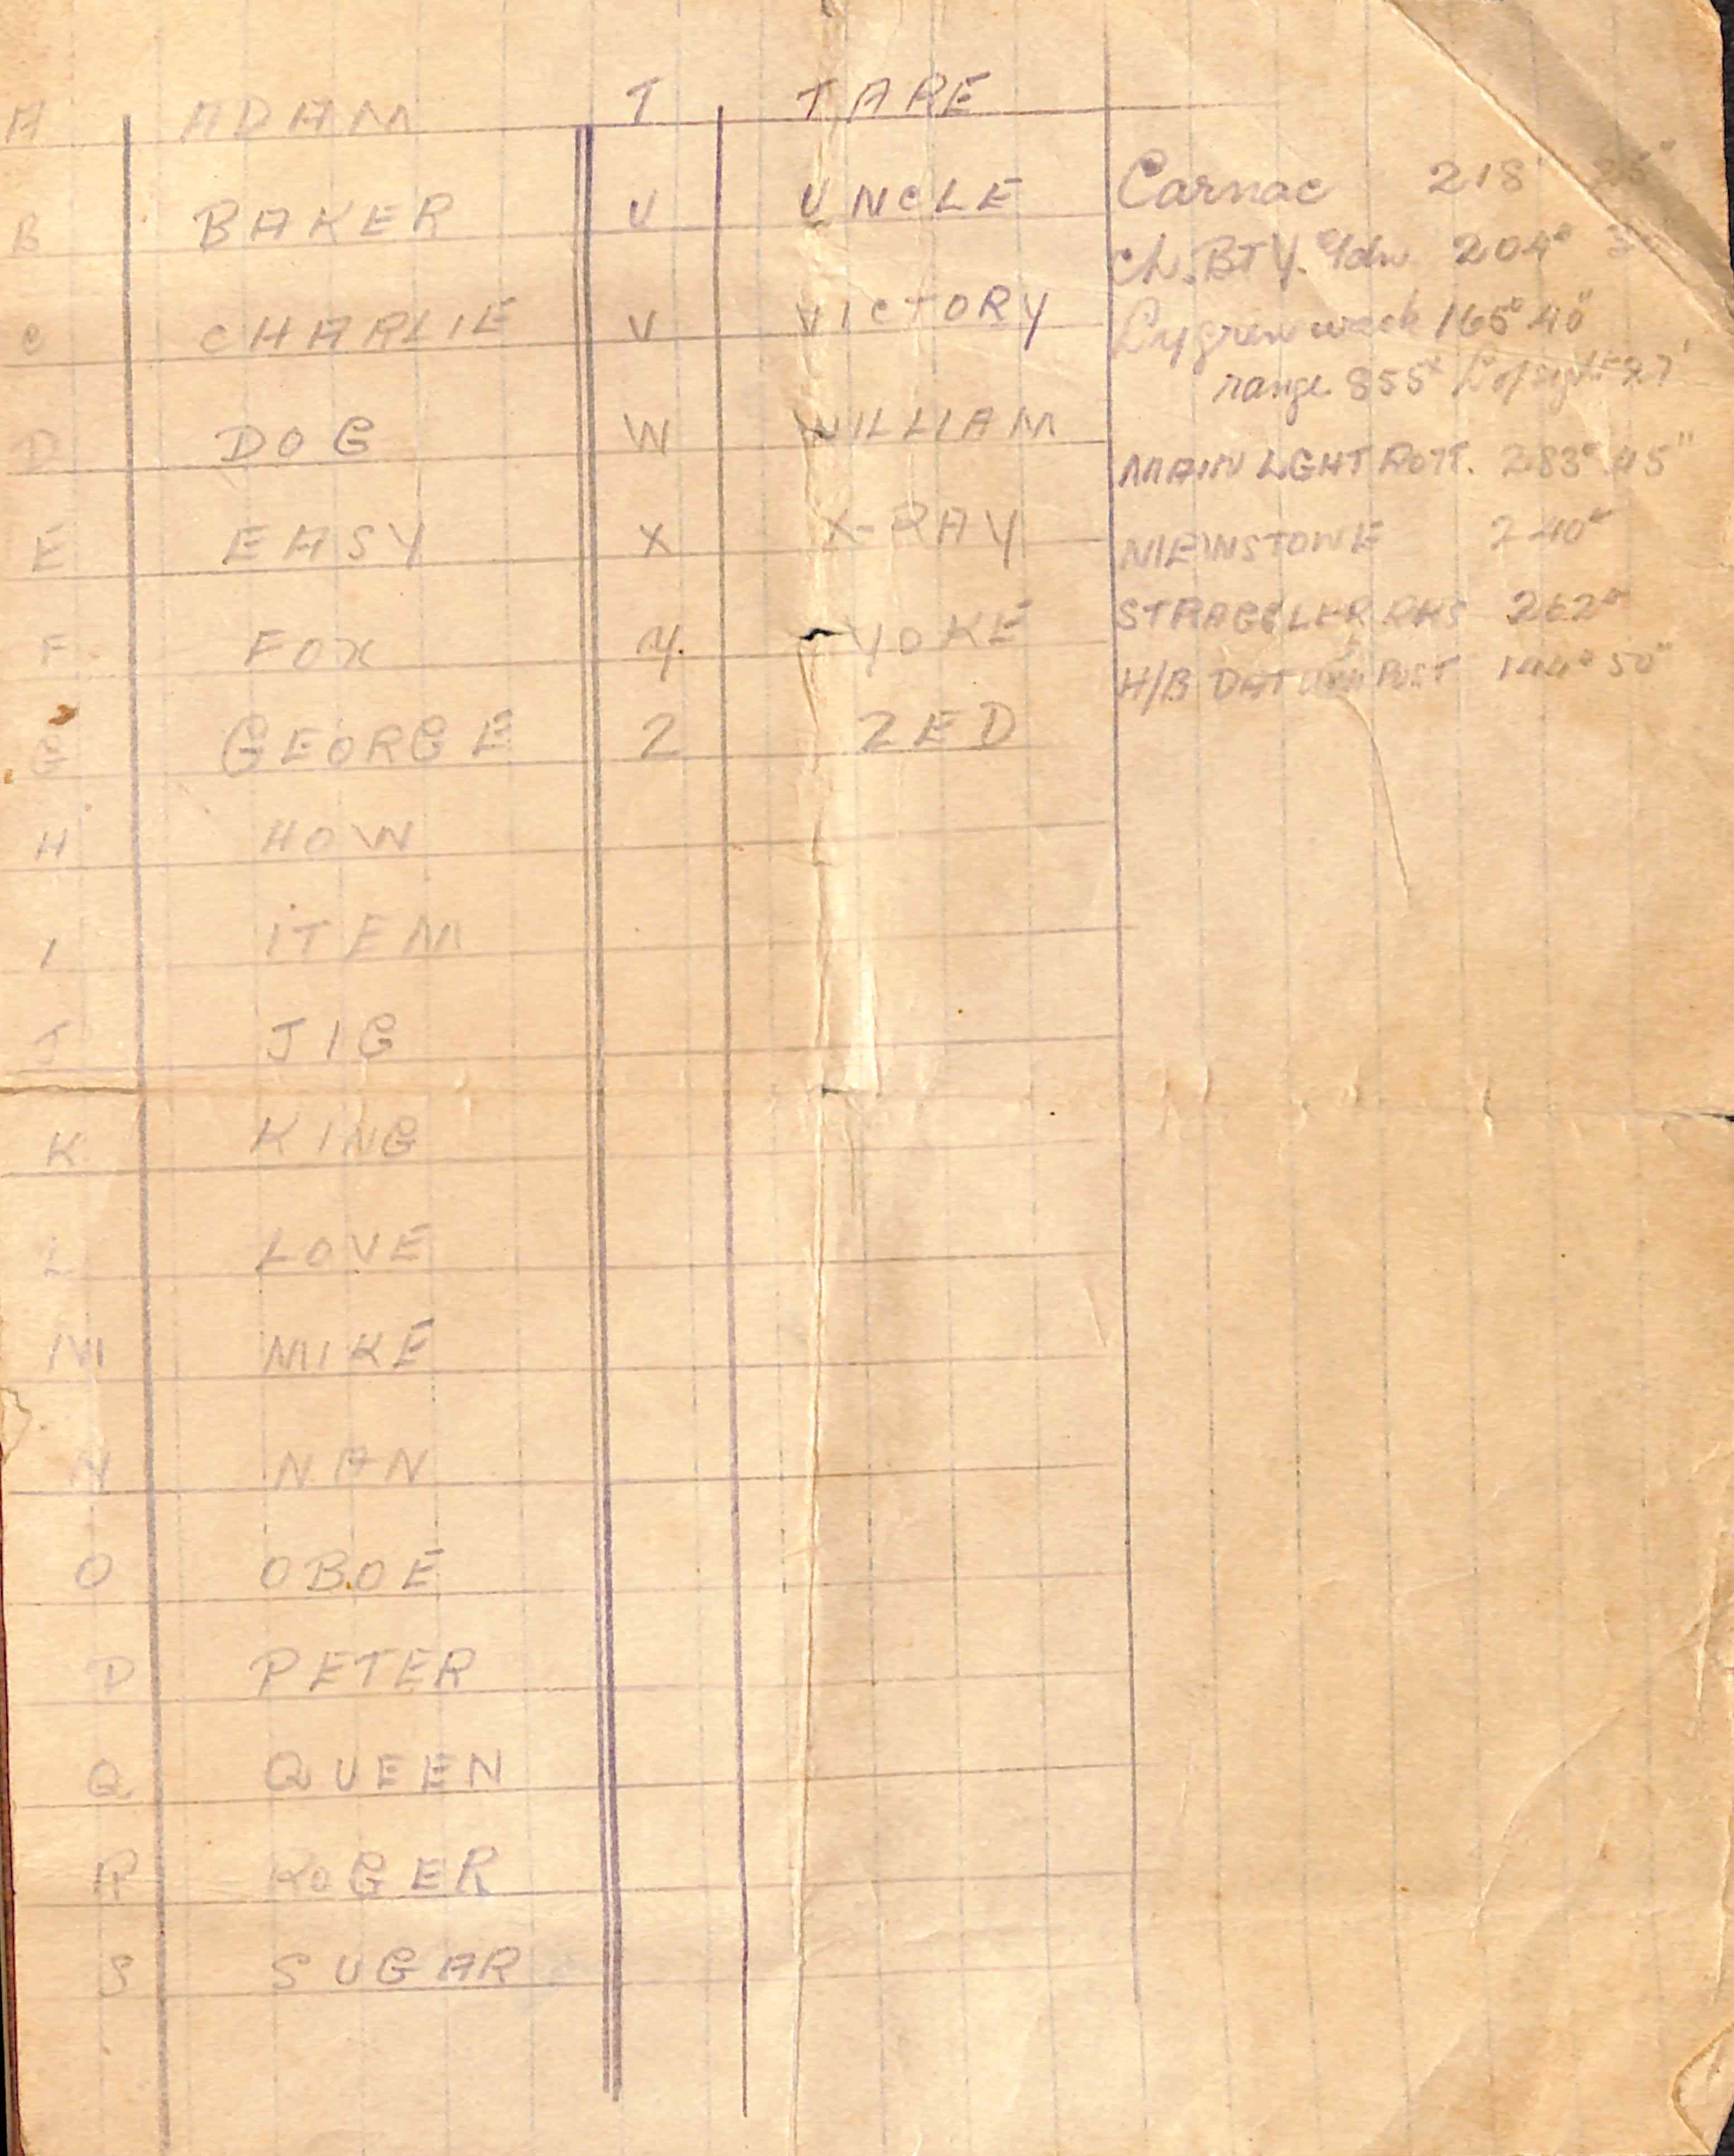 A ADAM
B BAKER
C CHARLIE
D DOG
E EASY
F FOX
G GEORGE
H HOW
I ITEM
J JIG
K KING
L LOVE
M MIKE
N NAN
O OBOE
P PETER
Q QUEEN
R ROGER
S SUGAR
T TARE
U UNCLE
V VICTORY
W WILLIAM
X X-RAY
Y YOKE
Z ZED
Carnac 218°
Ch. BTY. 204°
wreck 165° 40"
range 855ˣ 27'
MAIN LGHT ROTT. 283° 45"
240°
STRAGGLER RKS 262°
H/B DATUM POST 144° 50"